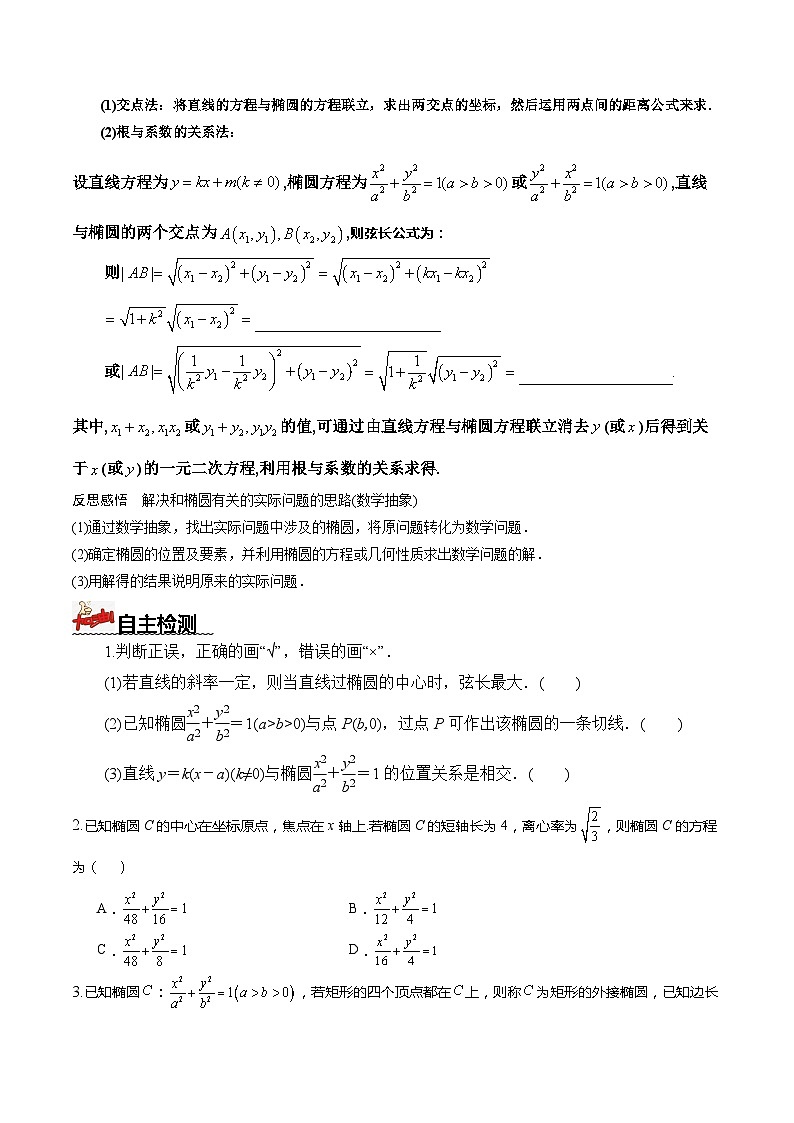 (1)交点法：将直线的方程与椭圆的方程联立，求出两交点的坐标，然后运用两点间的距离公式来求．
(2)根与系数的关系法：
设直线方程为 y = kx + m(k ≠ 0) ,椭圆方程为 x²/a² + y²/b² = 1(a > b > 0) 或 y²/a² + x²/b² = 1(a > b > 0) ,直线
与椭圆的两个交点为 A(x₁, y₁), B(x₂, y₂) ,则弦长公式为：
则| AB |= √((x₁ − x₂)² + (y₁ − y₂)²) = √((x₁ − x₂)² + (kx₁ − kx₂)²)
= √(1+ k²) √((x₁ − x₂)²) = ____________
或| AB |= √((1/k² y₁ − 1/k² y₂)² + (y₁ − y₂)²) = √(1+ 1/k²) √((y₁ − y₂)²) = ____________.
其中, x₁ + x₂, x₁x₂ 或 y₁ + y₂, y₁y₂ 的值,可通过由直线方程与椭圆方程联立消去 y (或 x )后得到关
于 x (或 y )的一元二次方程,利用根与系数的关系求得.
反思感悟　解决和椭圆有关的实际问题的思路(数学抽象)
(1)通过数学抽象，找出实际问题中涉及的椭圆，将原问题转化为数学问题．
(2)确定椭圆的位置及要素，并利用椭圆的方程或几何性质求出数学问题的解．
(3)用解得的结果说明原来的实际问题．
自主检测
1.判断正误，正确的画“√”，错误的画“×”．
(1)若直线的斜率一定，则当直线过椭圆的中心时，弦长最大．(　　)
(2)已知椭圆x²/a²＋y²/b²＝1(a>b>0)与点 P(b,0)，过点 P 可作出该椭圆的一条切线．(　　)
(3)直线 y＝k(x－a)(k≠0)与椭圆x²/a²＋y²/b²＝1 的位置关系是相交．(　　)
2.已知椭圆 C 的中心在坐标原点，焦点在 x 轴上.若椭圆 C 的短轴长为 4，离心率为 √(2/3)，则椭圆 C 的方程
为（　　）
A．x²/48 + y²/16 = 1　　B．x²/12 + y²/4 = 1
C．x²/48 + y²/8 = 1　　D．x²/16 + y²/4 = 1
3.已知椭圆 C：x²/a² + y²/b² = 1(a > b > 0)，若矩形的四个顶点都在 C 上，则称 C 为矩形的外接椭圆，已知边长